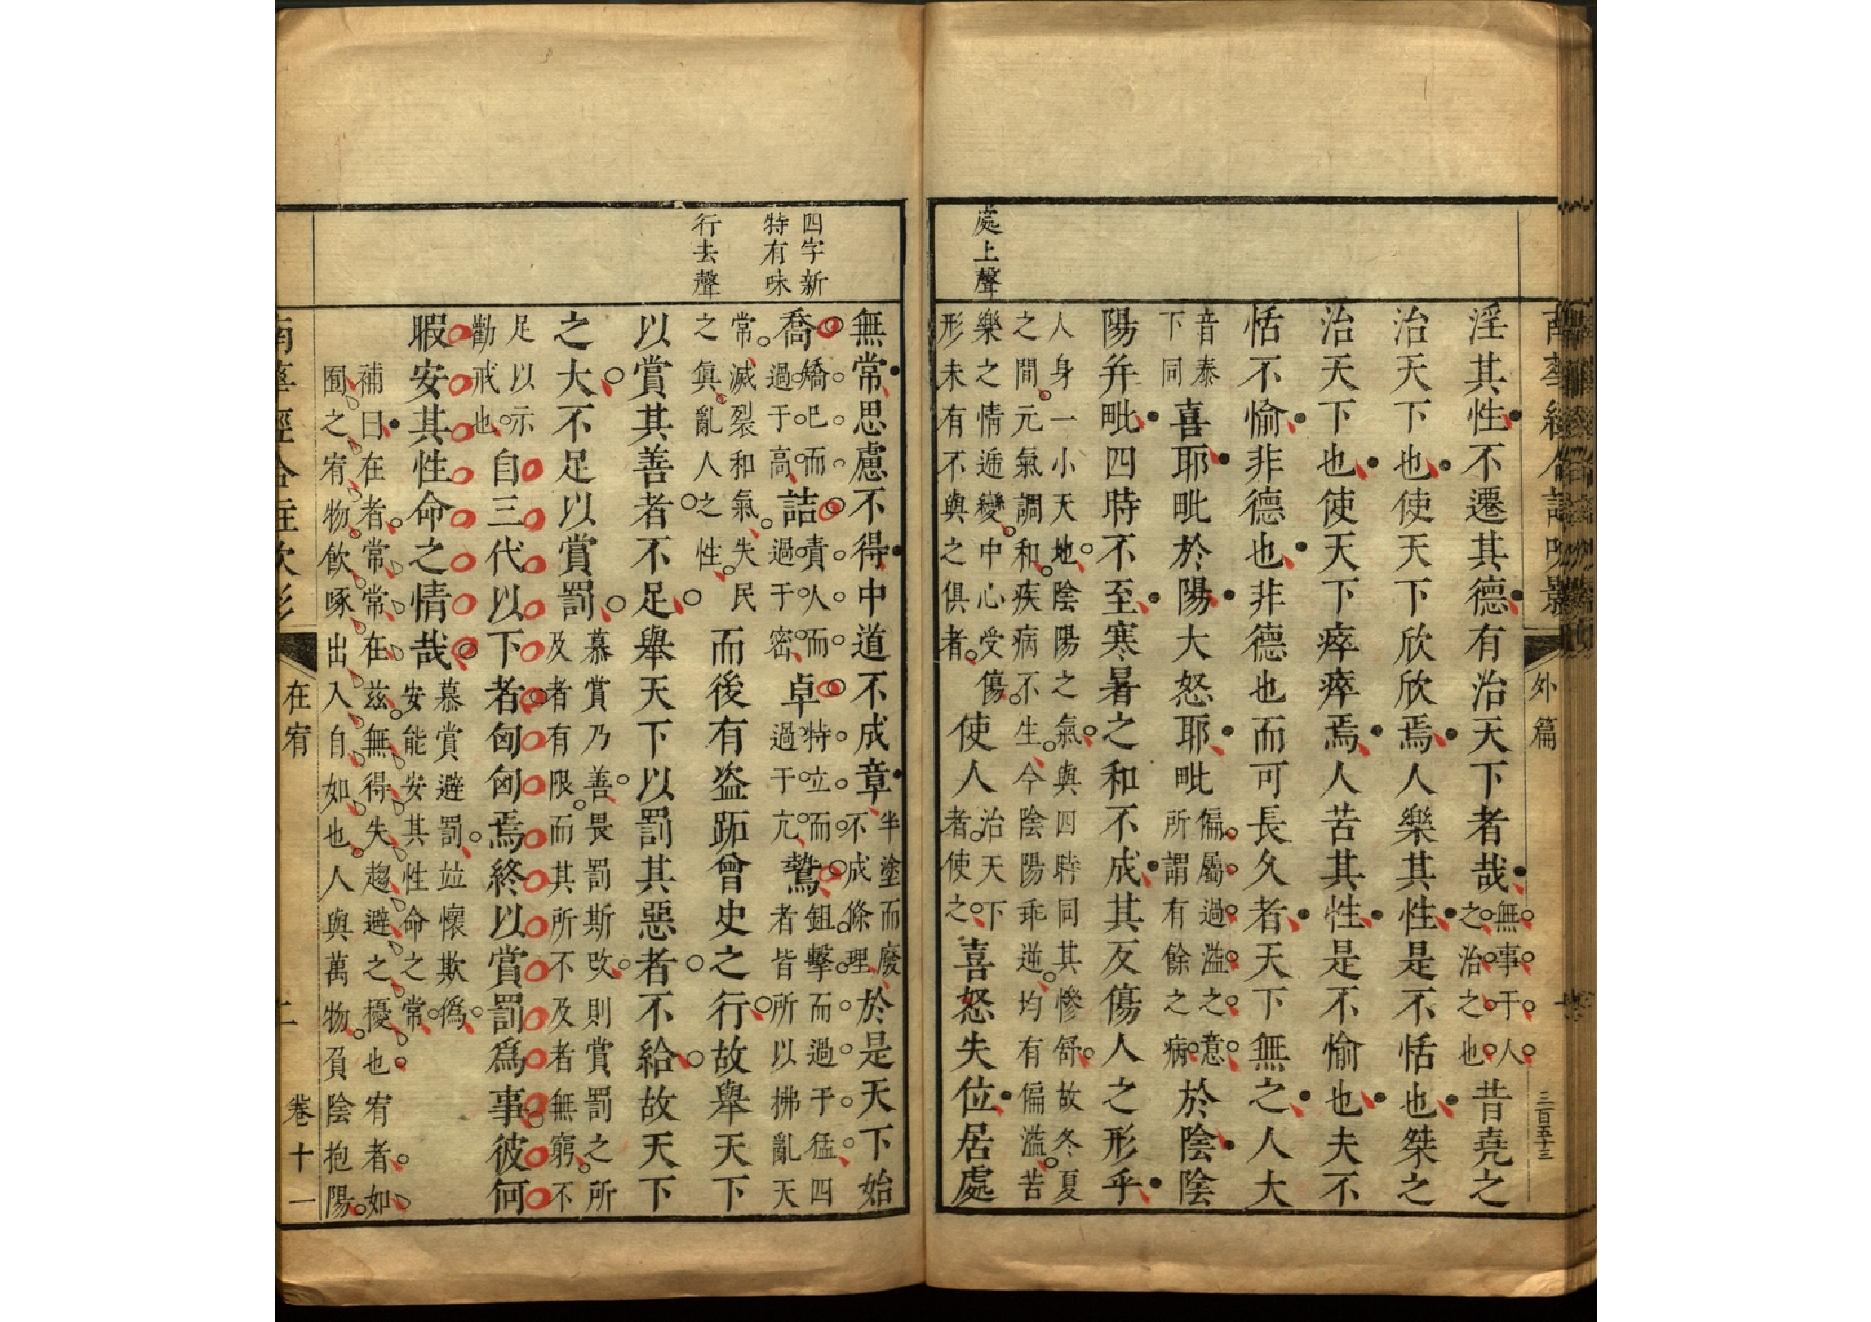 南華經合註吹影
外篇
三百五十三
處上聲
淫其性不遷其德有治天下者哉無事于人之治之也昔堯之
治天下也使天下欣欣焉人樂其性是不恬也桀之
治天下也使天下瘁瘁焉人苦其性是不愉也夫不
恬不愉非德也非德也而可長久者天下無之人大
音泰下同喜耶毗於陽大怒耶毗偏屬過溢之意所謂有餘之病於陰陰
陽并毗四時不至寒暑之和不成其反傷人之形乎
人身一小天地陰陽之氣與四時同其慘舒故冬夏
之間元氣調和疾病不生今陰陽乖逆均有偏溢苦
樂之情遞變中心受傷使人治天下者使之喜怒失位居處
形未有不與之俱者
四字新
特有味
行去聲
無常思慮不得中道不成章半塗而廢不成條理於是天下始
喬矯已而過于高詰責人而過于密卓特立而過于亢鷙鉏擊而過于猛四者皆所以拂亂天
常滅裂和氣失民
之眞亂人之性而後有盗跖曾史之行故舉天下
以賞其善者不足舉天下以罰其惡者不給故天下
之大不足以賞罰慕賞乃善畏罰斯改則賞罰之所及者有限而其所不及者無窮不
足以示
勸戒也自三代以下者匈匈焉終以賞罰爲事彼何
暇安其性命之情哉慕賞避罰竝懷欺僞安能安其性命之常
補曰在者常常在兹無得失趨避之擾也宥者如
囿之宥物飲啄出入自如也人與萬物負陰抱陽
南華經合註吹影
在宥
二
卷十一